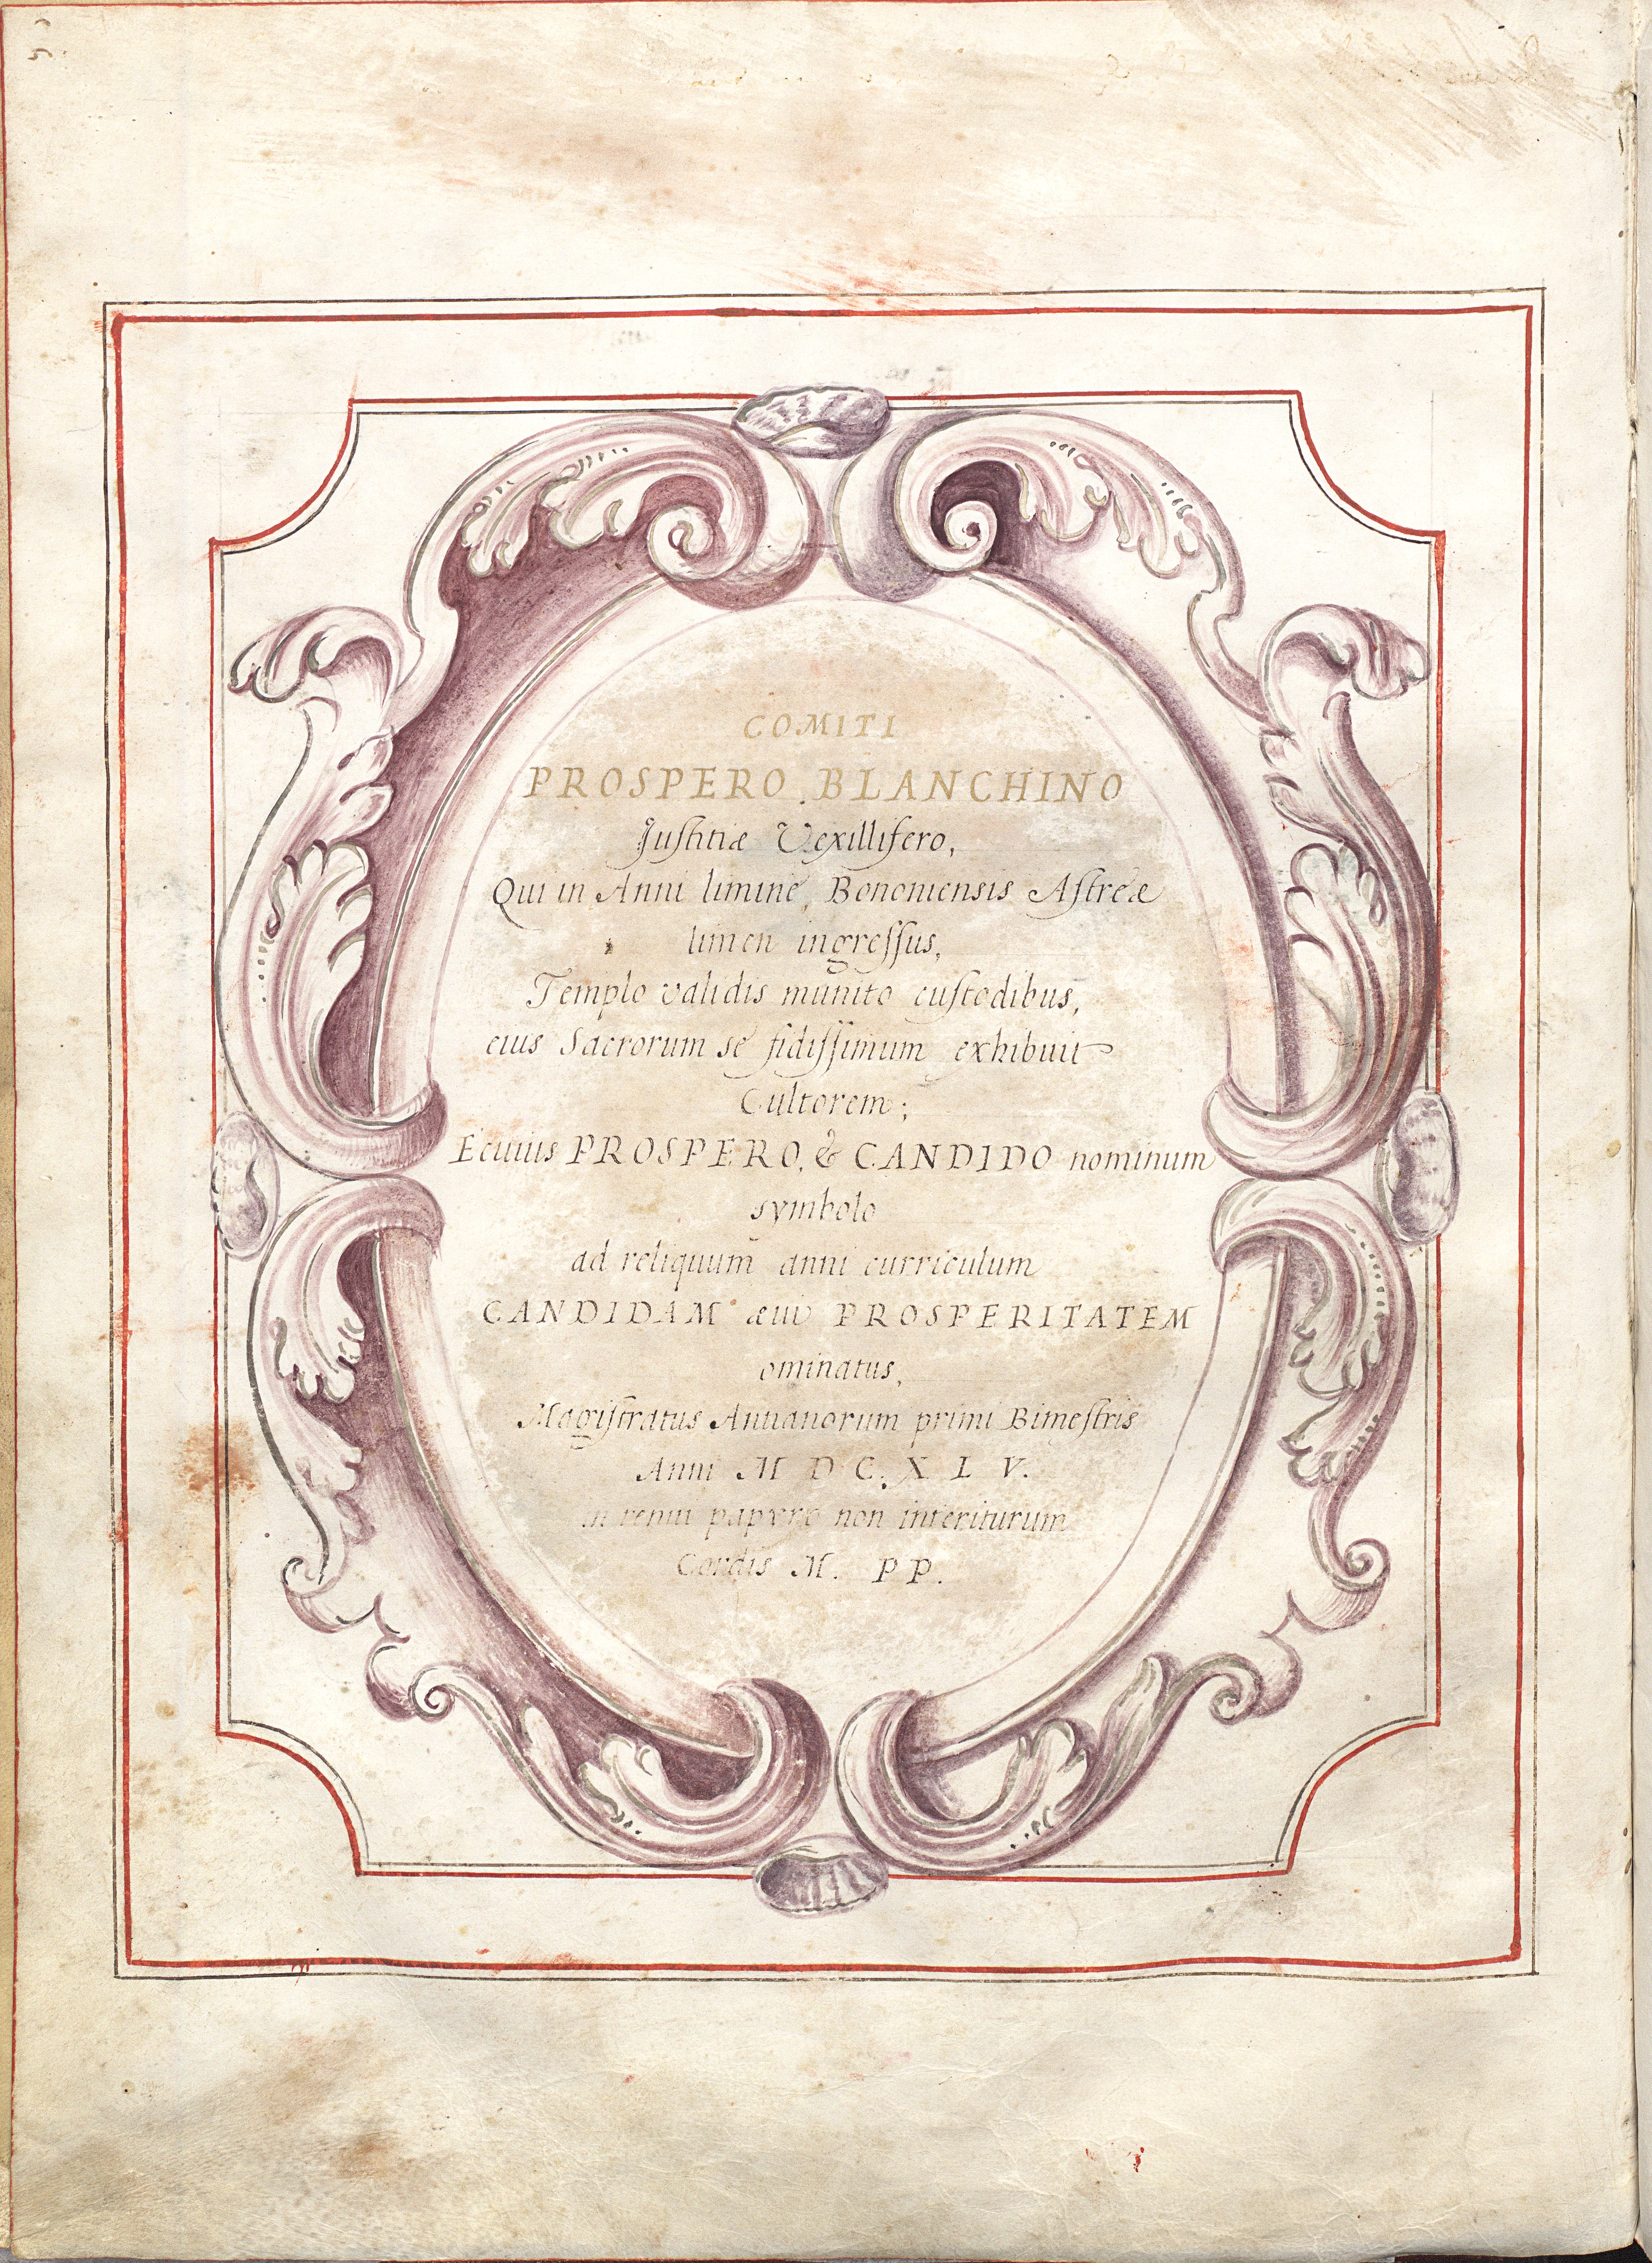 COMITI
PROSPERO BLANCHINO
Iustitiæ Vexillifero,
Qui in Anni limine, Bononiensis Astreæ
limen ingressus,
Templo validis munito custodibus,
eius Sacrorum se fidissimum exhibuit
Cultorem;
E cuius PROSPERO, & CANDIDO nominum
symbolo
ad reliquum anni curriculum
CANDIDAM æui PROSPERITATEM
ominatus,
Magistratus Antianorum primi Bimestris
Anni M D C. X L V.
in tenui papyro non interiturum
Cordis M. P P.